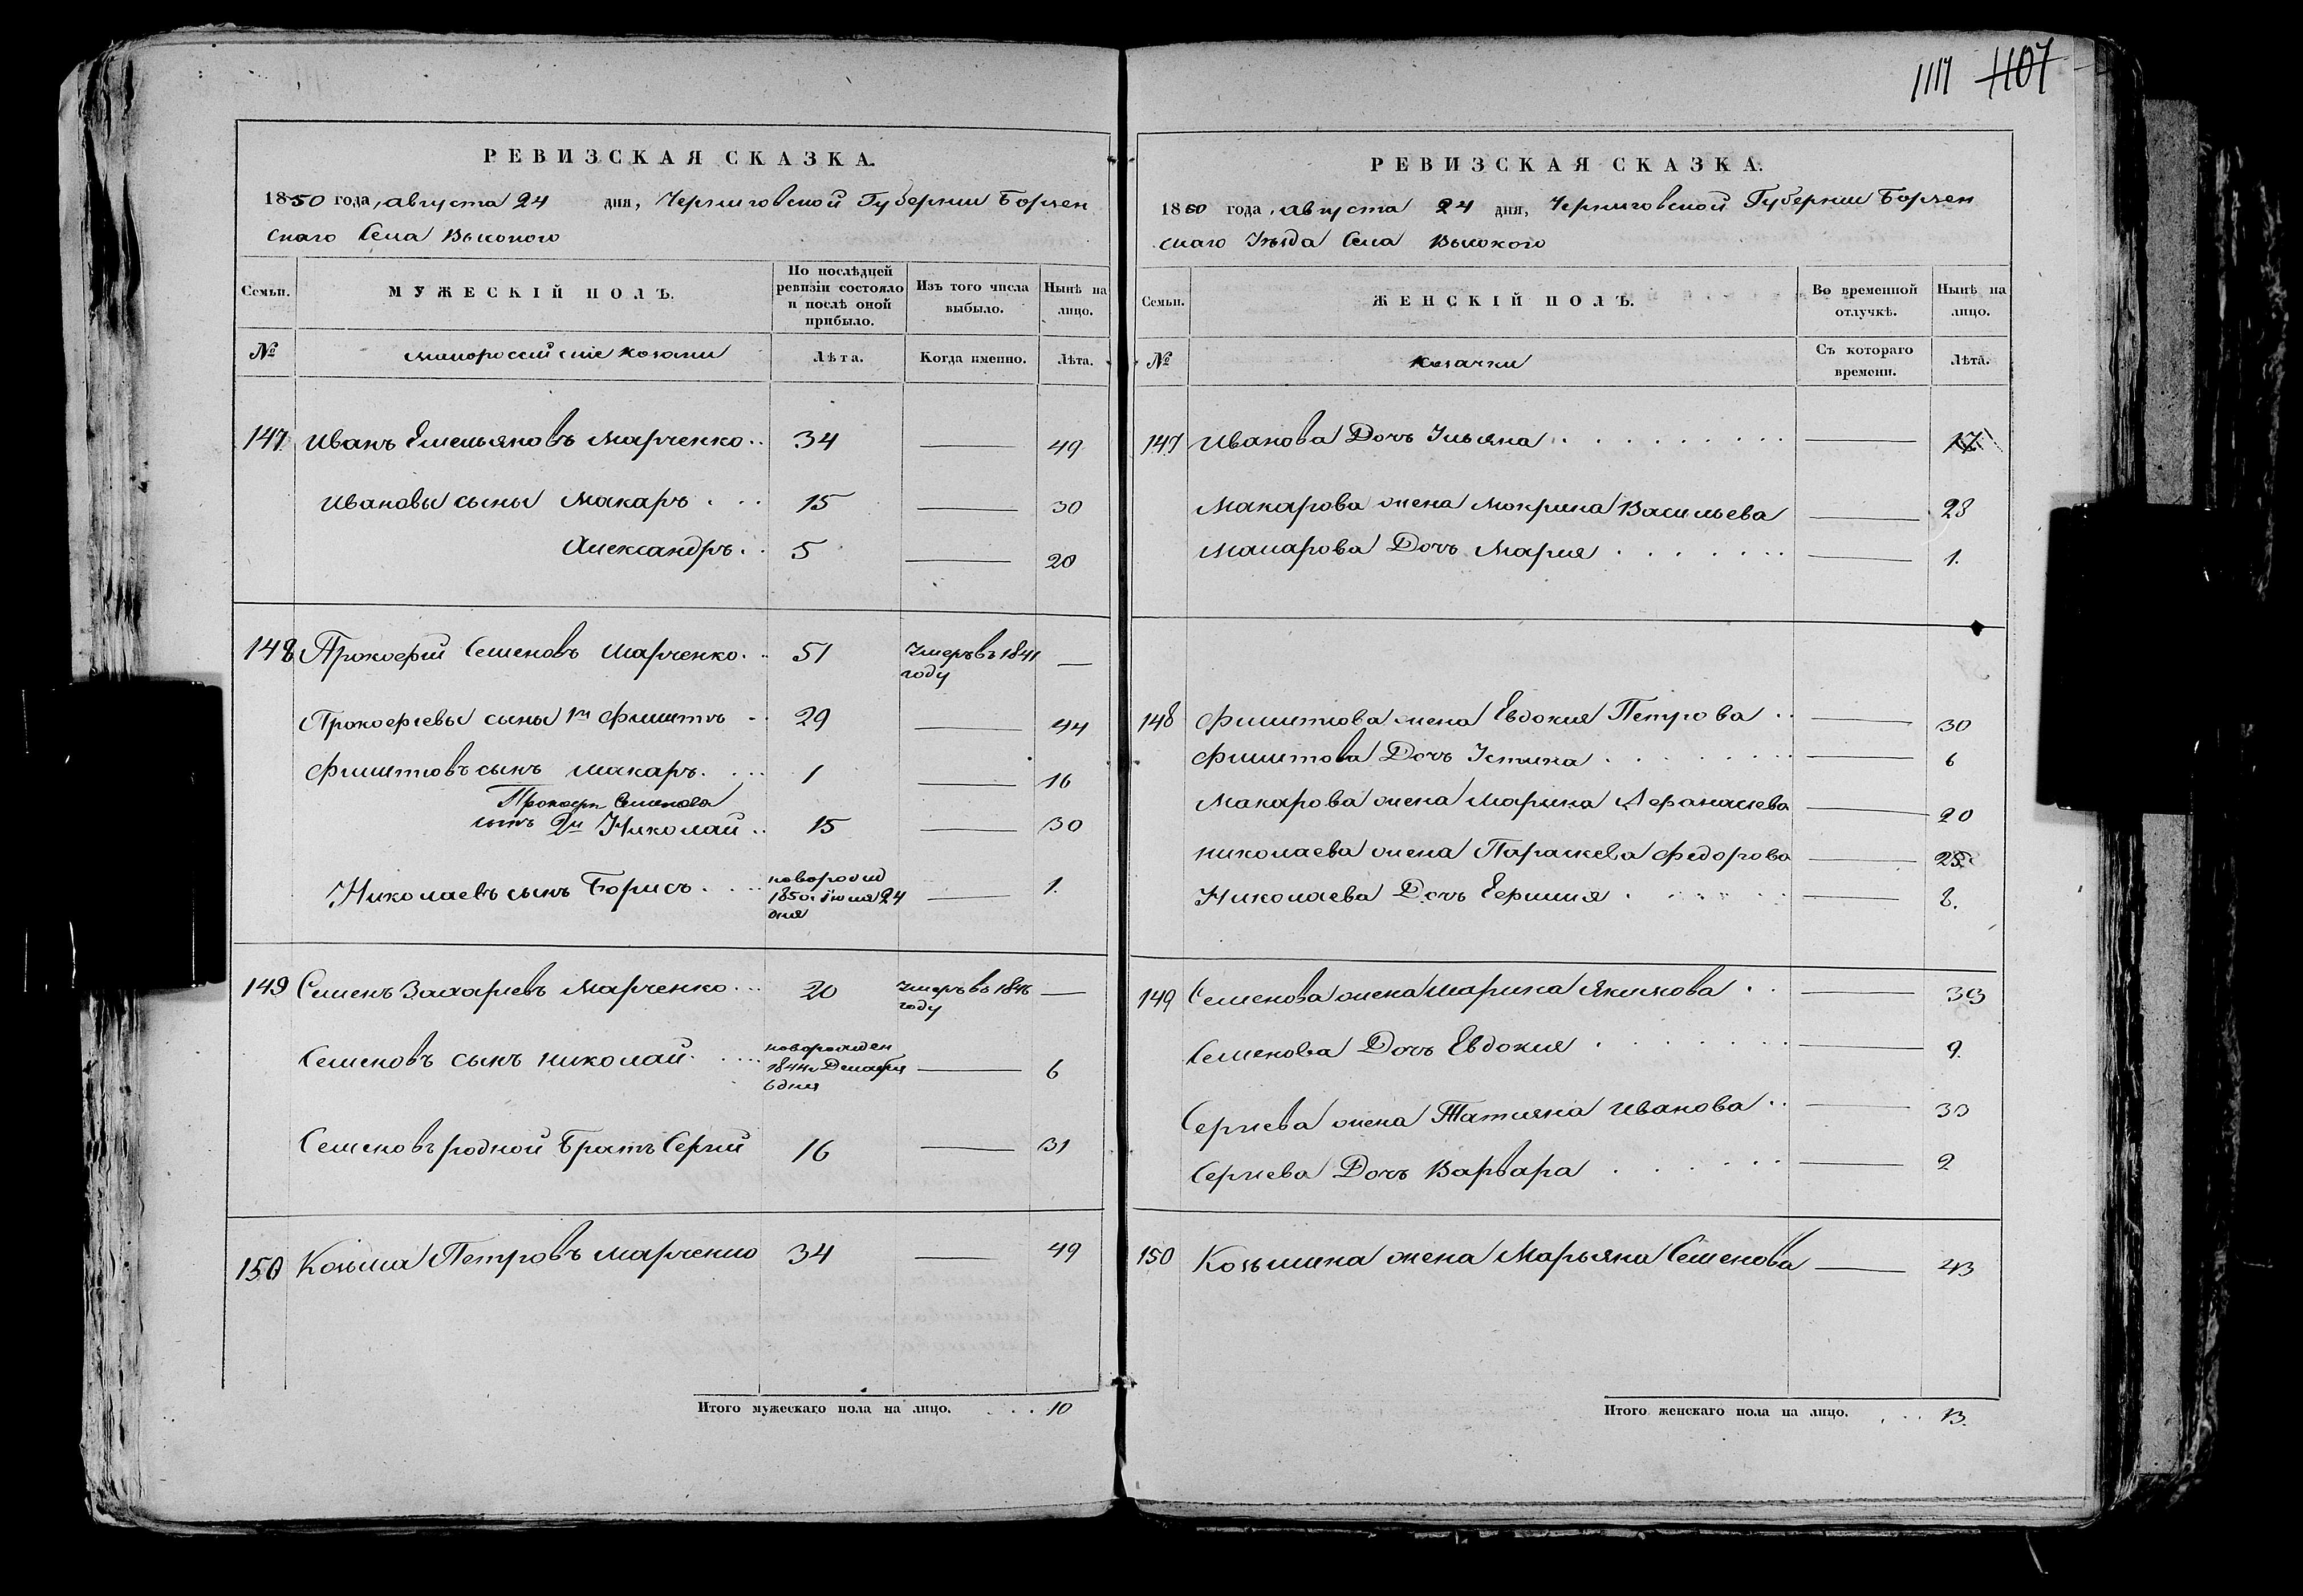 1111 1107
РЕВИЗСКАЯ СКАЗКА.
1850 года, августа 24 дня, Черниговской Губернии Борзен
скаго Села Высокого
Семьи. МУЖЕСКІЙ ПОЛЪ. По послѣдней ревизіи состояло и послѣ оной прибыло. Изъ того числа выбыло. Нынѣ на лицо.
№ малороссийские козаки Лѣта. Когда именно. Лѣта.
147 Иванъ Емельяновъ Марченко.. 34 — 49
Ивановы сыны Макаръ ... 15 — 30
Александръ.. 5 — 20
148 Прокофий Семеновъ Марченко.. 51 Умеръ въ 1841 году —
Прокофиевы сыны 1й Филиппъ .. 29 — 44
Филипповъ сынъ Макаръ.... 1 — 16
Прокофия Семенова
сынъ 2й Николай.. 15 — 30
Николаевъ сынъ Борисъ.... новорожд 1850. июля 24 дня — 1.
149 Семенъ Захариевъ Марченко... 20 Умеръ въ 1846 году —
Семеновъ сынъ Николай..... новорожден 1844 Декабря 6 дня — 6
Семеновъ родной Братъ Сергий 16 — 31
150 Козьма Петровъ Марченко 34 — 49
Итого мужескаго пола на лицо. ... 10
РЕВИЗСКАЯ СКАЗКА.
1850 года, августа 24 дня, Черниговской Губернии Борзен
скаго Уезда Села Высокого
Семьи. ЖЕНСКІЙ ПОЛЪ. Во временной отлучкѣ. Нынѣ на лицо.
№ козачки Съ котораго времени. Лѣта.
147 Иванова Дочь Ульяна .......... — 17
Макарова жена Мокрина Васильева — 28
Макарова Дочь Мария ....... — 1.
148 Филиппова жена Евдокия Петрова .. — 30
Филиппова Дочь Устина ....... — 6
Макарова жена Марина Афанасиева — 20
Николаева жена Параскева Федорова — 25
Николаева Дочь Ефимия ...... — 8.
149 Семенова жена Марина Якимова .. — 33
Семенова Дочь Евдокия ....... — 9.
Сергиева жена Татияна Иванова .. — 30
Сергиева Дочь Варвара ...... — 2
150 Козьмина жена Марьяна Семенова — 43
Итого женскаго пола на лицо. .... 13.